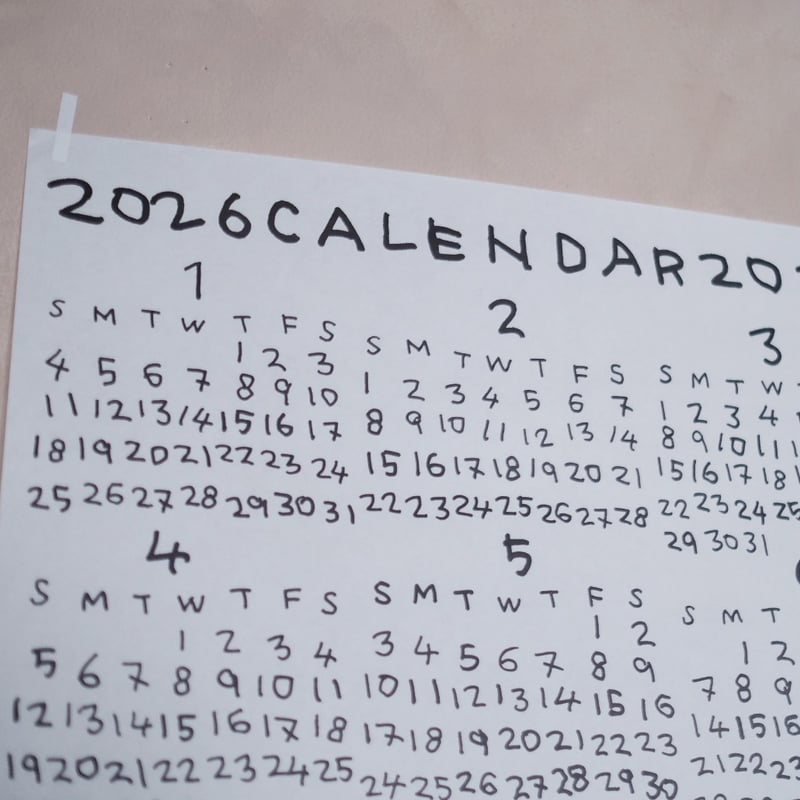 2026 CALENDAR 20
1 2 3
S M T W T F S S M T W T F S S M T W
1 2 3 1 2 3 4 5 6 7 1 2 3 4
4 5 6 7 8 9 10 8 9 10 11 12 13 14 8 9 10 11
11 12 13 14 15 16 17 15 16 17 18 19 20 21 15 16 17 18
18 19 20 21 22 23 24 22 23 24 25 26 27 28 22 23 24 25
25 26 27 28 29 30 31 29 30 31
4 5
S M T W T F S S M T W T F S S M T
1 2 3 4 1 2 1 2
5 6 7 8 9 10 11 3 4 5 6 7 8 9 7 8 9
12 13 14 15 16 17 18 10 11 12 13 14 15 16 14 15 16
19 20 21 22 23 24 25 17 18 19 20 21 22 23 21 22 23
24 25 26 27 28 29 30